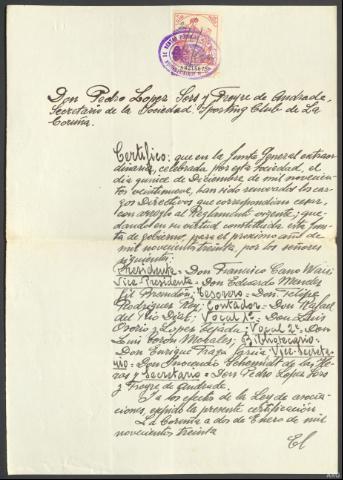 Don Pedro Lopez Sors y Freyre de Andrade,
Secretario de la Sociedad Sporting Club de La
Coruña.
Certifico: que en la Junta General extraor-
dinaria, celebrada por esta Sociedad, el
dia quince de Diciembre de mil novecien-
tos veintinueve, han sido renovados los car-
gos Directivos que correspondian cesar,
con arreglo al Reglamento vigente; que-
dando en su virtud constituida esta Jun-
ta de gobierno, para el proximo año de
mil novecientos treinta, por los señores
siguientes:
Presidente = Don Francisco Cano
Vice-Presidente = Don Eduardo Mendez
Gil Brandón; Tesorero = Don Felipe
Rodriguez Rey; Contador = Don Rafael
del Rio Diaz; Vocal 1º = Don Luis
Osorio y Lopez Tejada; Vocal 2º = Don
Luis Morales; Bibliotecario =
Don Enrique Fraga Garcia; Vice-Secreta-
rio = Don Inocencio Schomidt de las He-
ras y Secretario = Don Pedro Lopez Sors
y Freyre de Andrade.
Y a los efectos de la Ley de asocia-
ciones expido la presente certificación.
La Coruña a dos de Enero de mil
novecientos treinta
El